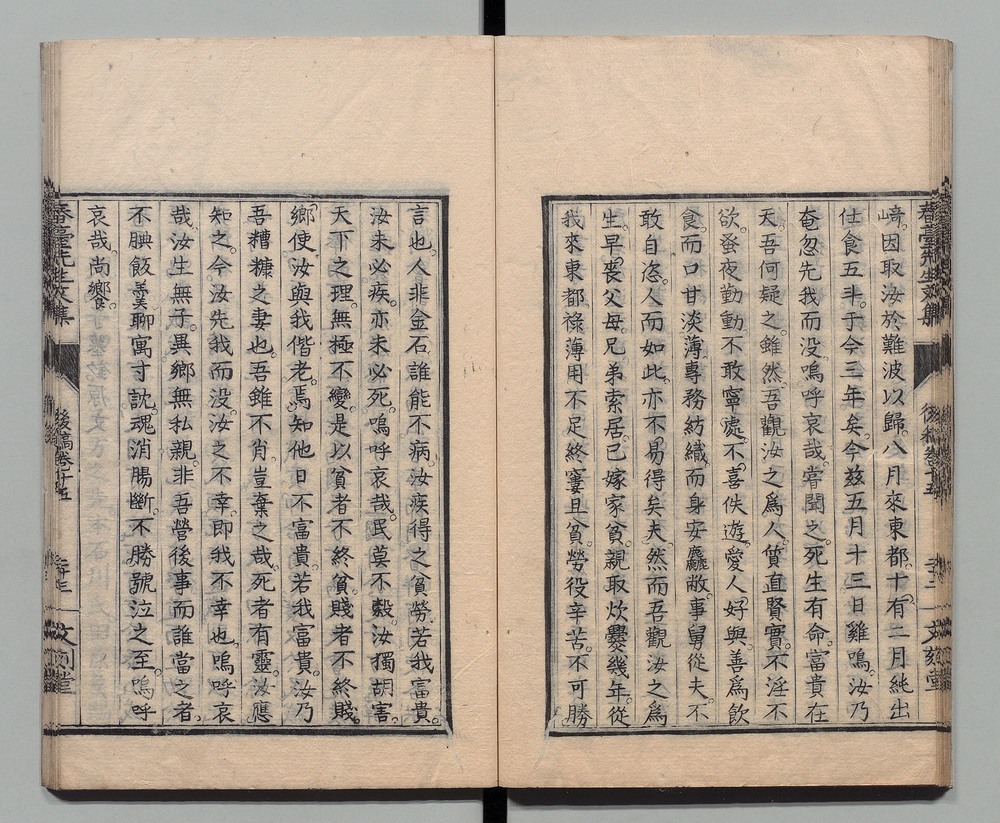 崎。因取汝於難波以歸。八月來東都。十有二月純出
仕食五斗。于今三年矣。今茲五月十三日雞鳴。汝乃
奄忽先我而没。嗚呼哀哉。嘗聞之。死生有命。富貴在
天。吾何疑之。雖然。吾觀汝之為人。質直賢實。不淫不
欲。蚤夜勤動。不敢寧處。不喜佚遊。愛人好與。善為飲
食。而口甘淡薄。專務紡織。而身安麤敝。事舅從夫。不
敢自恣。人而如此。亦不易得矣。夫然而吾觀汝之為
生。早喪父母。兄弟索居。已嫁家貧。親取炊爨幾年。從
我來東都。祿薄用不足。終窶且貧。勞役辛苦。不可勝
言也。人非金石。誰能不病。汝疾得之貧勞。若我富貴。
汝未必疾。亦未必死。嗚呼哀哉。民莫不穀。汝獨胡害。
天下之理。無極不變。是以貧者不終貧。賤者不終賤。
鄉使汝與我偕老。焉知他日不富貴。若我富貴。汝乃
吾糟糠之妻也。吾雖不肖。豈棄之哉。死者有靈。汝應
知之。今汝先我而没。汝之不幸。即我不幸也。嗚呼哀
哉。汝生無子。異鄉無私親。非吾營後事而誰當之者。
不腆飯羹。聊寓寸忱。魂消腸斷。不勝號泣之至。嗚呼
哀哉。尚饗。
春臺先生文集
後稿卷十五